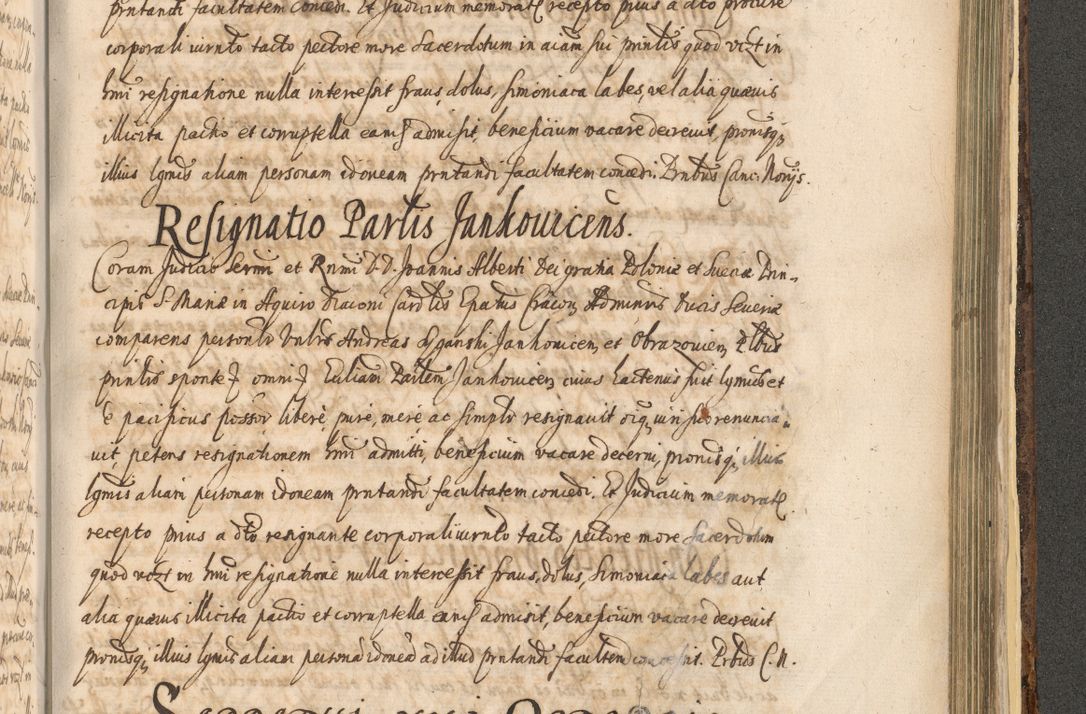 prntandi facultatem concedi. Et Judicium memorat recepto prius a dto procure
corporali iurnto tacto pectore more Sacerdotum in aiam sui prinlis quod vizt in
hmi resignatione nulla intercessit fraus, dolus, simoniaca labes, vel alia quæuis
illicita pactio et corruptella eamq admisit, beneficium vacare decreuit, pronisq
illius lgmis aliam personam idoneam prntandi facultatem concedi. Prntbus Canc. Norys.
Resignatio Partis Jankouicens.
Coram Judicio Sermi et Rnmi D.D. Joannis Alberti Dei gratia Poloniæ et Sueciæ Prin-
cipis S. Mariæ in Aquiro Diaconi Cardlis Epatus Cracon Adminris Ducis Seueriæ
comparens personlr Vnlbis Andreas Lyganski Jankouicen et Obrazouien Eltbus
prinlis sponte omni Eccliam Partem Jankouicen cuius hactenus fuit lgmus et
pacificus possor liberè, purè, merè ac simplr resignauit oiq iuri suo renuncia-
uit, petens resignationem hmi admitti, beneficium vacare decerni, pronisq illius
lgmis aliam personam idoneam prntandi facultatem concedi. Et Judicium memorat
recepto prius a dto resignante corporali iurnto tacto pectore more Sacerdotum
quod vizt in hmi resignatione nulla intercessit fraus, dolus, Simoniaca labes aut
alia quæuis illicita pactio et corruptella eamq admisit, beneficium vacare decreuit
pronisq illius lgmis aliam personã idoneã ad illud prntandi facultem concessit. Prbus C. N.